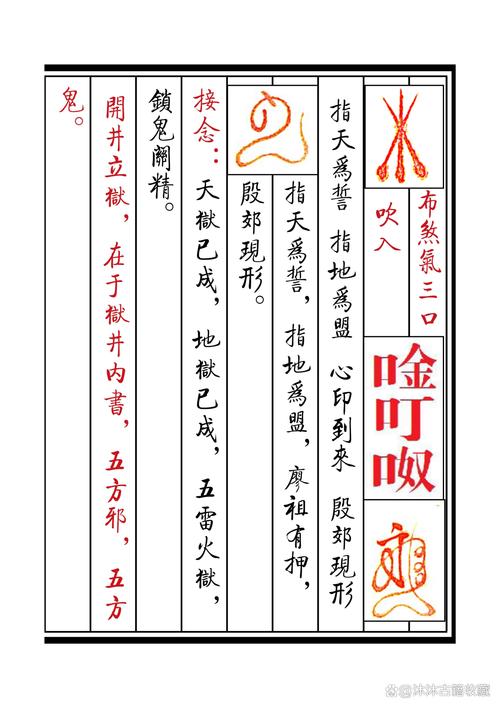 布煞氣三口
吹入
唫叮呶
指天爲誓 指地爲盟 心印到來 殷郊現形
指天爲誓，指地爲盟，廖祖有押，
殷郊現形。
接念：天獄已成，地獄已成，五雷火獄，
鎖鬼關精。
開井立獄，在于獄井内書，五方邪，五方
鬼。
@沐沐古籍收藏